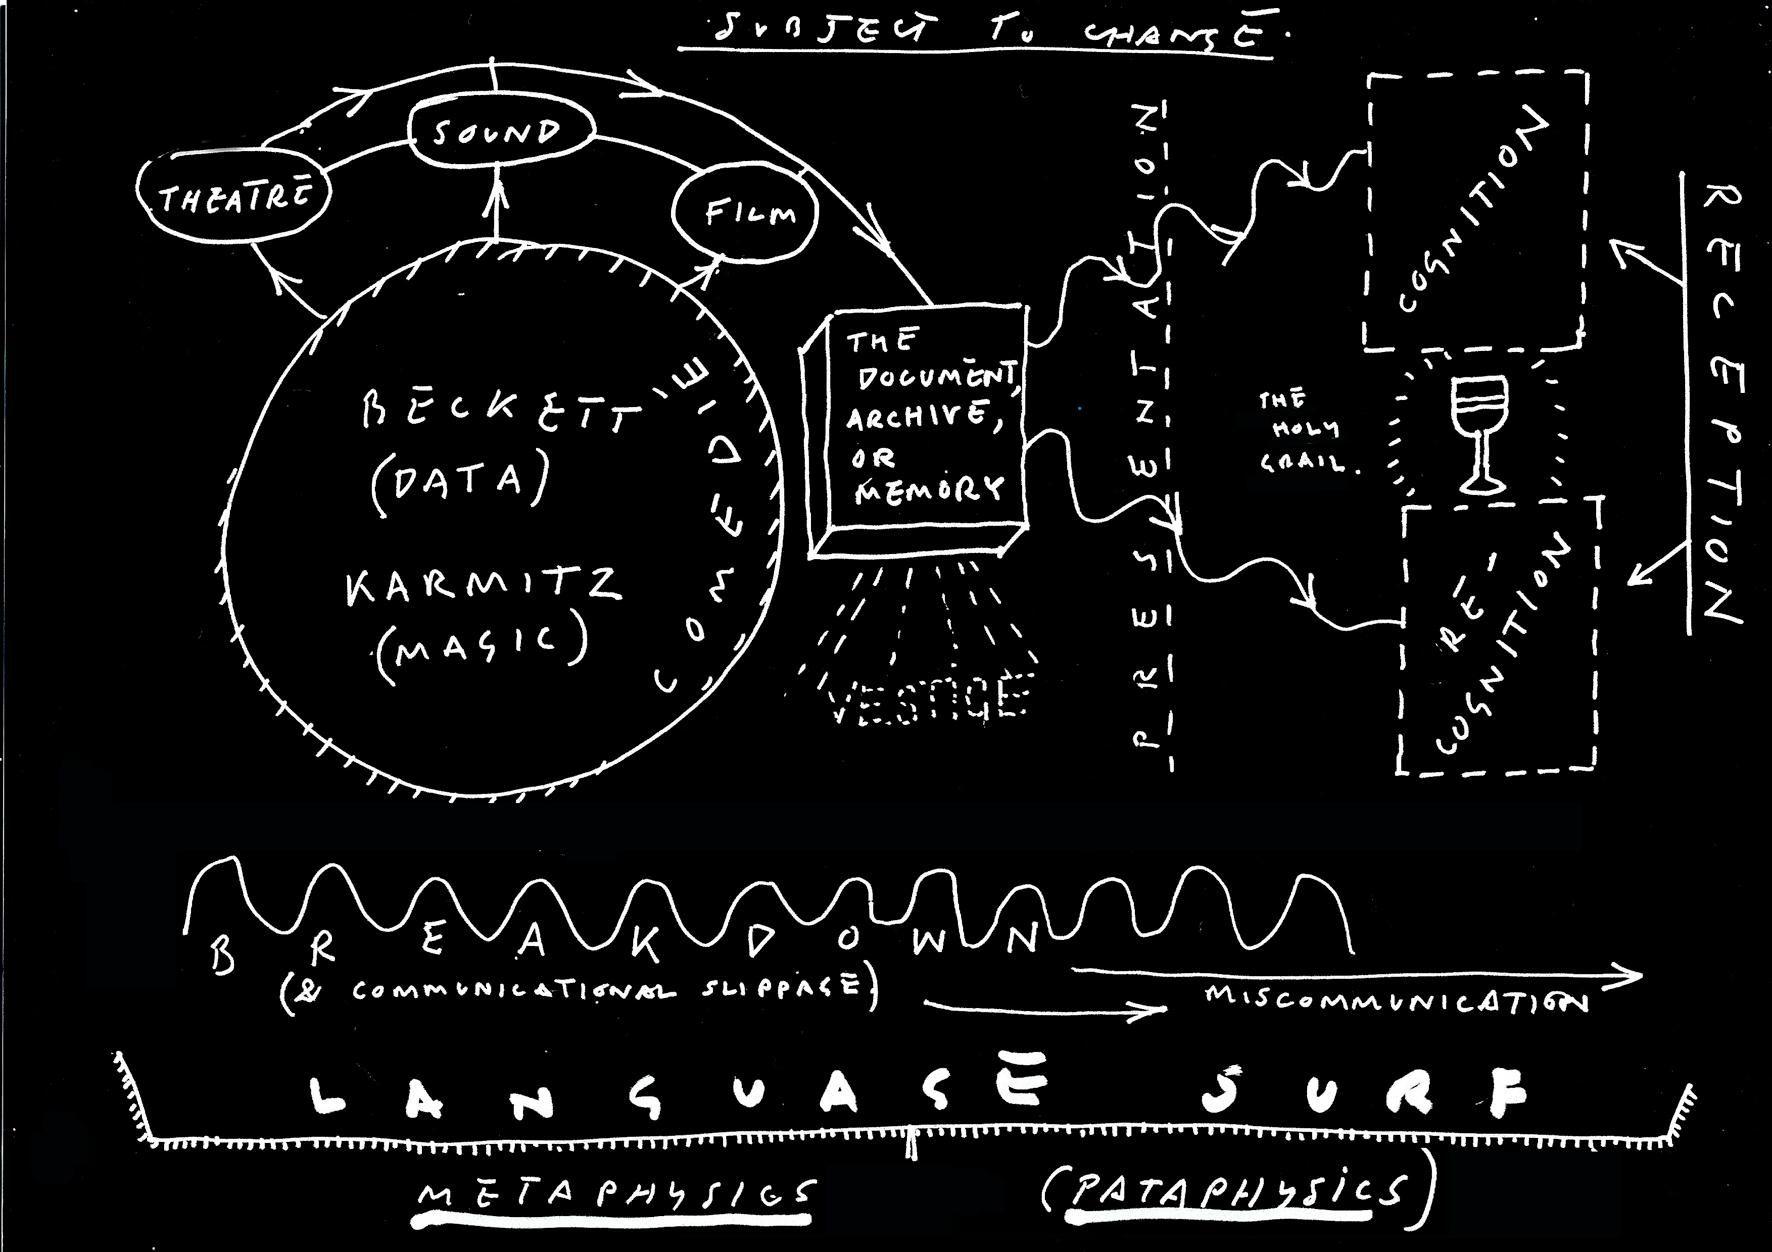 SUBJECT TO CHANGE.
THEATRE
SOUND
FILM
BECKETT
(DATA)
KARMITZ
(MAGIC)
COMEDIE
THE
DOCUMENT,
ARCHIVE,
OR
MEMORY
VESTIGE
PRESENTATION
COGNITION
THE
HOLY
GRAIL.
RE-
COGNITION
RECEPTION
BREAKDOWN
(& COMMUNICATIONAL SLIPPAGE)
MISCOMMUNICATION
LANGUAGE SURF
METAPHYSICS
(PATAPHYSICS)